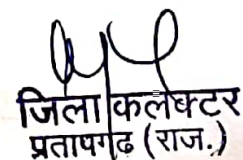 जिला कलेक्टर
प्रतापगढ़ (राज.)